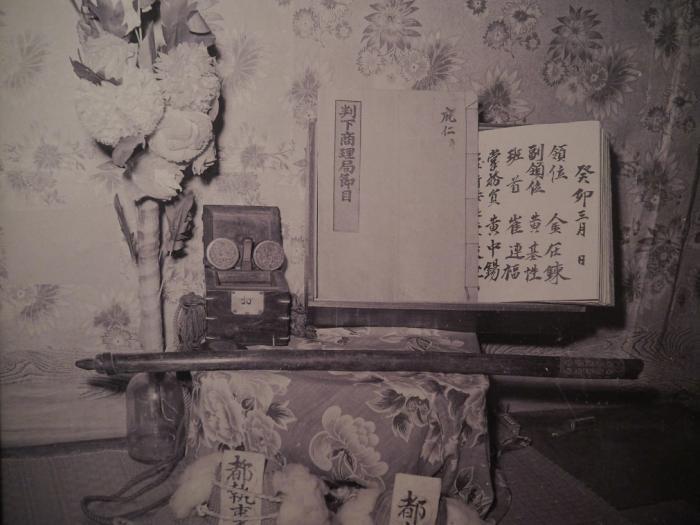 癸卯三月 日
領位 金任鍊
副領位 黃基性
班首 崔連福
掌務員 黃中錫
庇仁
判下商理局節目
都
都執事